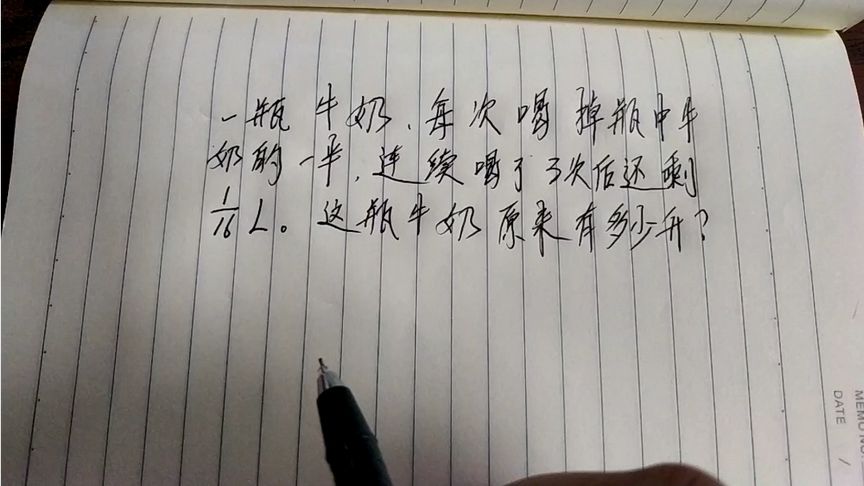 一瓶牛奶，每次喝掉瓶中牛
奶的一半，连续喝了3次后还剩
1/16 L。这瓶牛奶原来有多少升?
DATE /